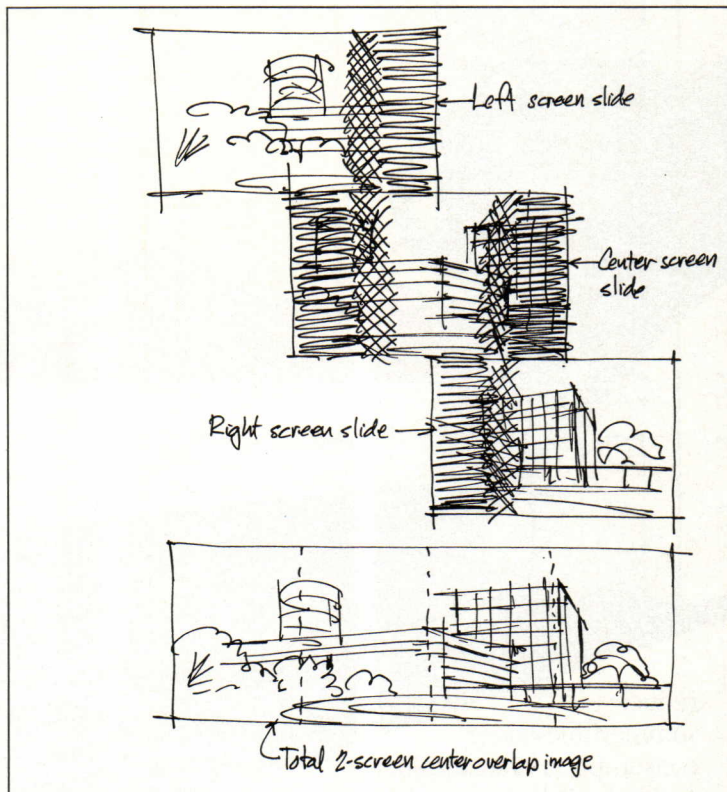 Left screen slide
Center screen
slide
Right screen slide
Total 2-screen center overlap image